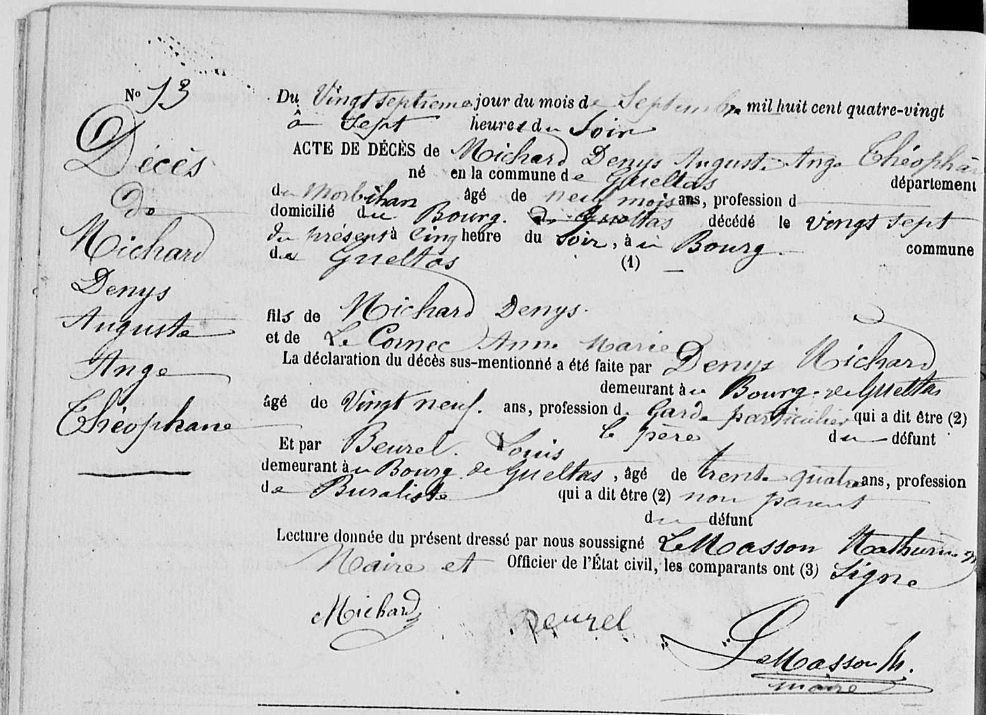 No 13
Décès
de
Michard
Denys
Auguste
Ange
Théophane
Du Vingt septieme jour du mois de Septembre mil huit cent quatre-vingt
à Sept heures du Soir
ACTE DE DÉCÈS de Michard Denys Auguste Ange Théophane
né en la commune de Gueltas département
du Morbihan âgé de neuf mois ans, profession d
domicilié du Bourg de Gueltas décédé le vingt sept
du présent à cinq heure du soir, à au Bourg commune
de Gueltas (1)
fils de Michard Denys
et de Le Cornec Anne Marie
La déclaration du décès sus-mentionné a été faite par Denys Michard
demeurant à au Bourg de Gueltas
âgé de Vingt neuf ans, profession de Garde particulier qui a dit être (2)
le père du défunt
Et par Beurel Louis
demeurant à au Bourg de Gueltas, âgé de trente quatre ans, profession
de Buraliste qui a dit être (2) non parent
du défunt
Lecture donnée du présent dressé par nous soussigné Le Masson Mathurin
Maire et Officier de l'État civil, les comparants ont (3) Signé
Michard Beurel
Le Masson M.
maire